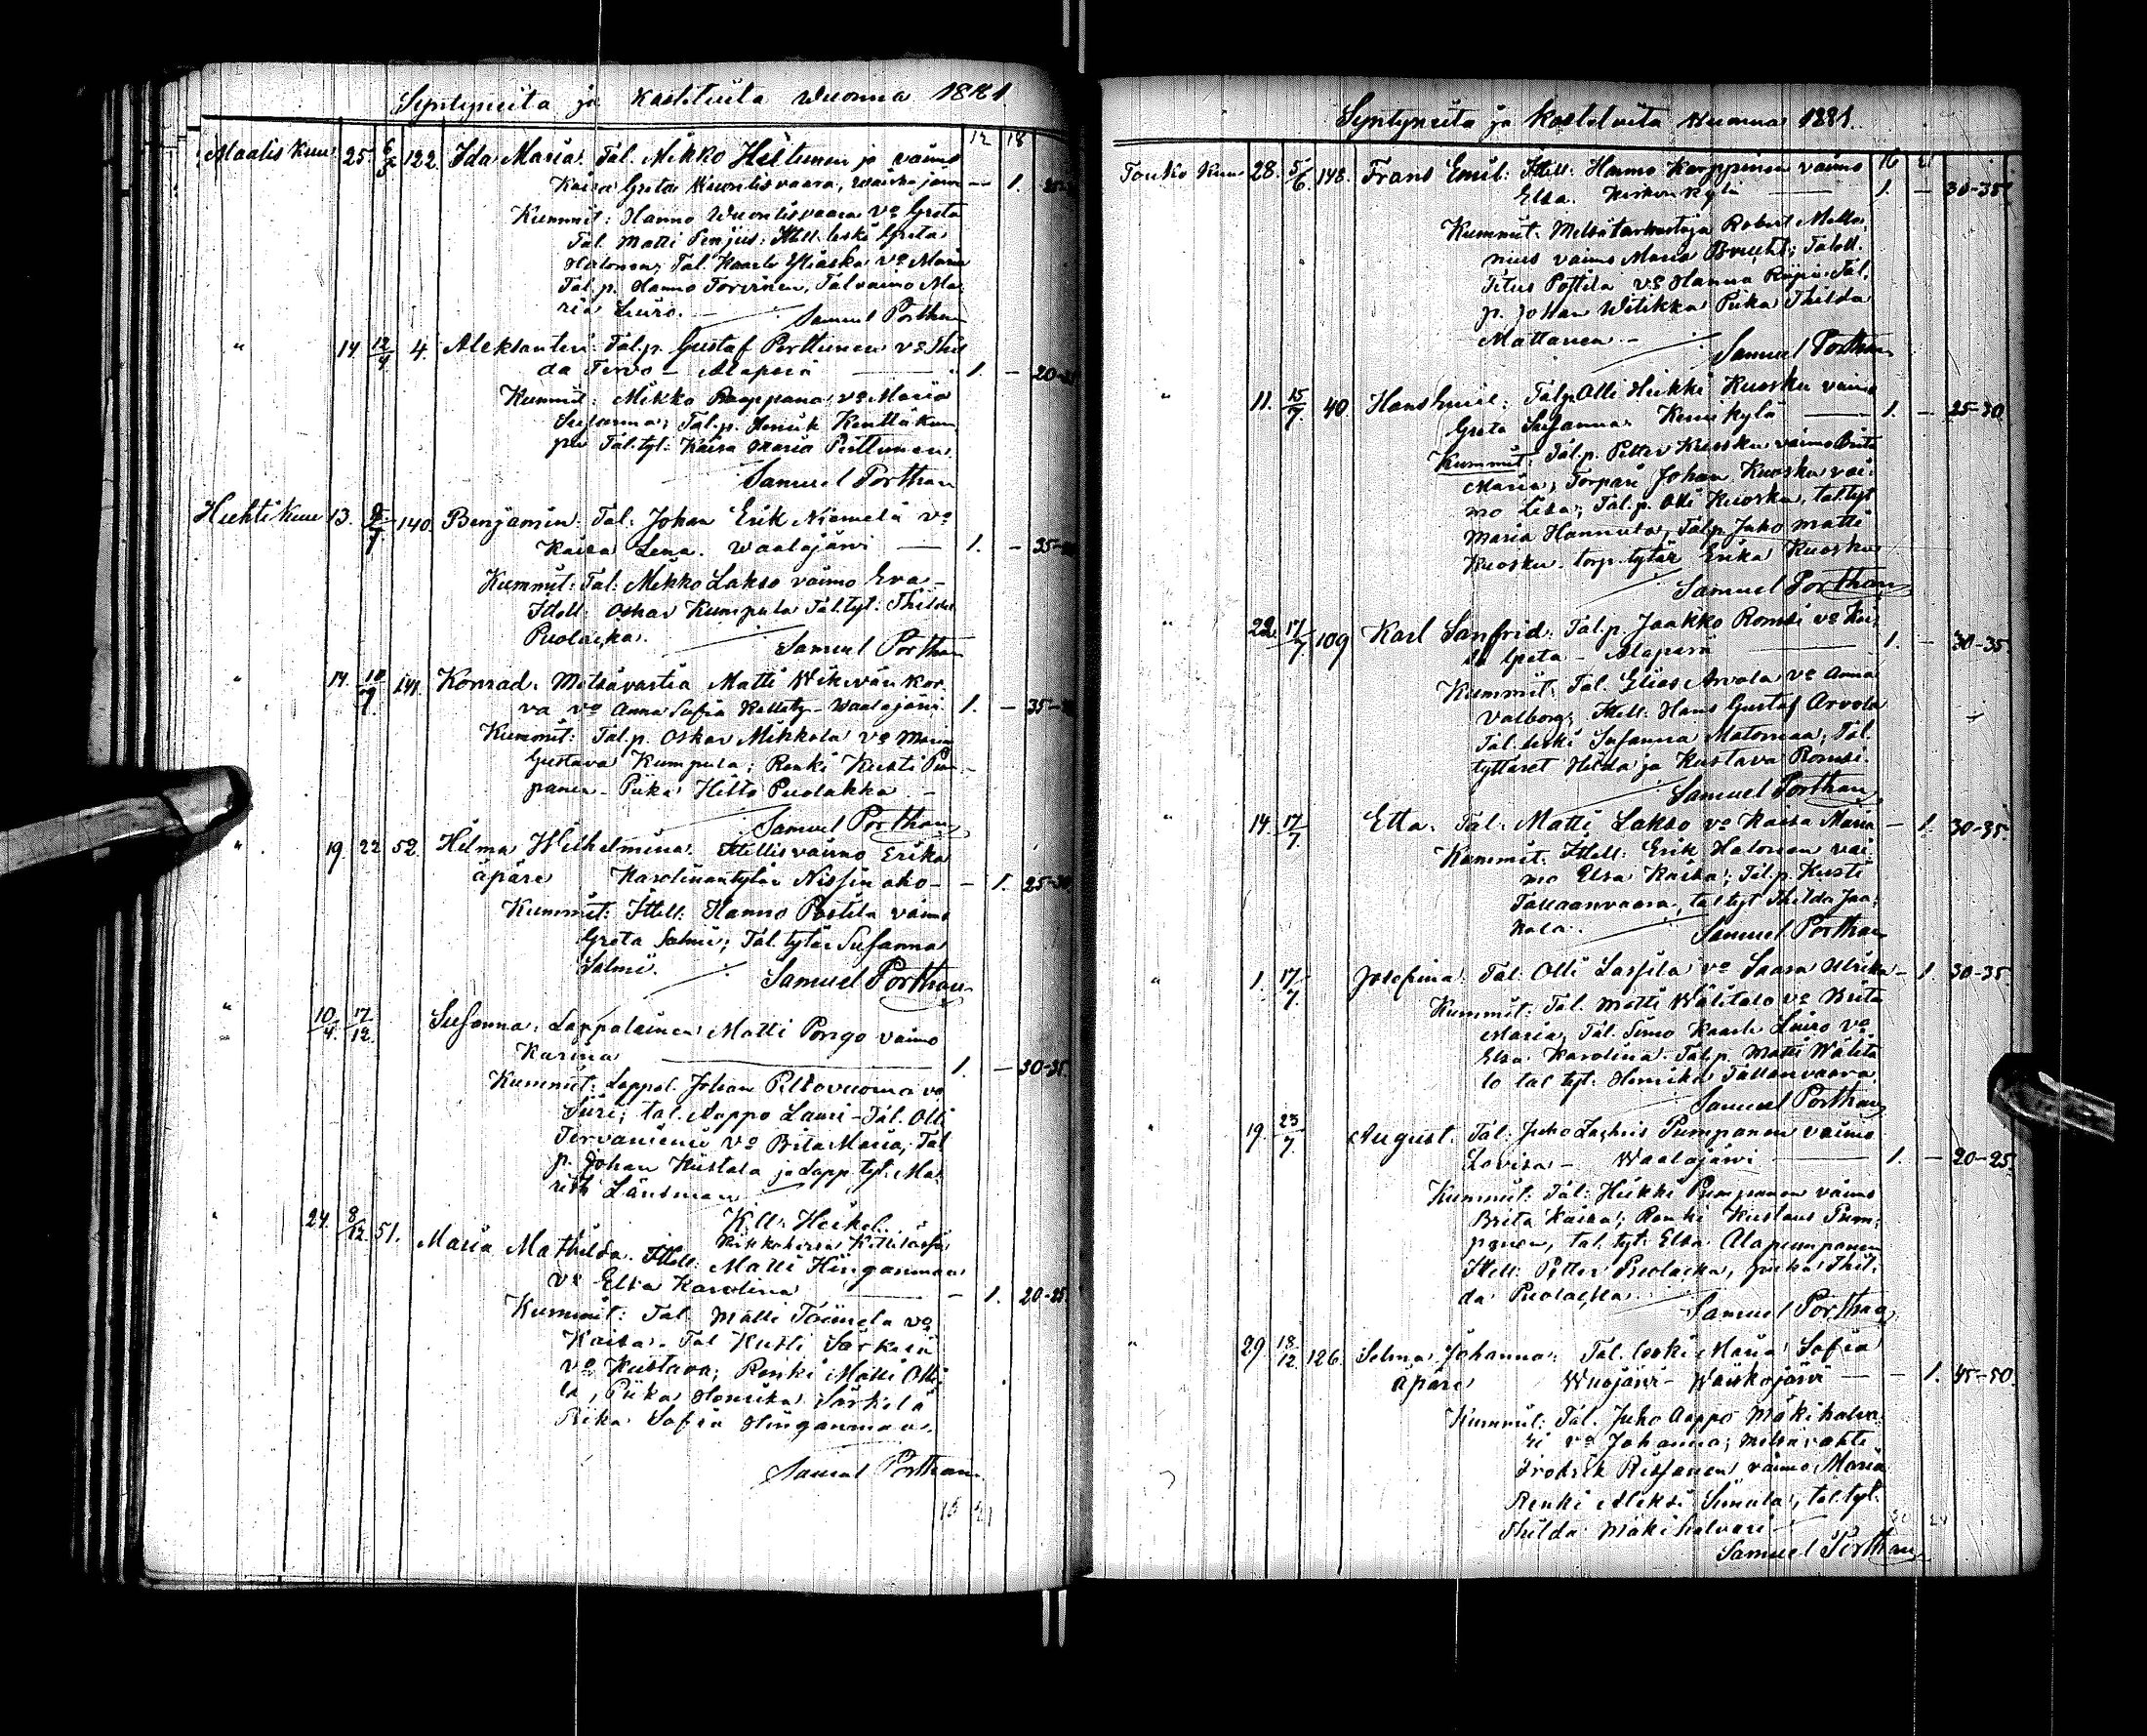 Syntyneitä ja kastetuita Wuonna 1881
12 18
Maalis kuu 25. 6/5 122. Ida Maria. Tal. Mikko Hiltunen ja vaimo
Kaisa Greta Wuontisvaara, Waiskojärvi — 1.
Kummit: Hanno Wuontisvaara vo Greta
Tal. Matti Penjus; Itell. leski Greta
Halonen; Tal. Kaarlo vo Maria
Tal. p. Hanno Torvinen, Tal vaimo Ma-
ria Liuro. — Samuel Porthan
" 14 12/4 4. Aleksanteri. Tal.p. Gustaf Perttunen vo Thil
da Tervo — Alaperä — 1. — 20-
Kummit: Mikko Raappana vo Maria
Susanna; Tal. p. Henrik Kenttäkum
pu Tal. tyt. Kaisa Maria Perttunen.
Samuel Porthan
Huhti kuu 13. 140. Benjamin. Tal. Johan Erik Niemelä vo
Kaisa Lena. Waalajärvi — 1. — 35-
Kummit: Tal. Mikko Lakso vaimo Eva —
Itell. Oskar Kumpula Tal. tyt. Thilda
Puolakka. Samuel Porthan
" 14 10/7. 141. Konrad. Metsävartia Matti Wikevän kor
va vo Anna Sofia — Waalajärvi 1. — 35-
Kummit: Tal. p. Oskar Mikkola vo Maria
Gustava Kumpula; Renki Kusti Pum-
panen — Piika Hilta Puolakka —
Samuel Porthan
" 19. 22 52. Hilma Wilhelmina. Itellisvaimo Erika
äpäre Karolinantytär Nissin aho — 1. 25-30
Kummit: Itell. Hanno Postila vaimo
Greta Salmi; Tal. tytär Susanna
Salmi. Samuel Porthan
" 10/4. 17/12. Susanna. Lappalainen Matti Pongo vaimo
Karina — 1. — 30-35.
Kummit: Lappal. Johan Peltovuoma vo
Siiri; tal. Aappo Lauri — Tal. Olli
Tervaniemi vo Brita Maria; Tal.
p. Johan Kiistala ja Lapp. tyt. Ma-
rith Länsman
K. H. Heikel.
Kirkkoherra Kittilässä
" 24. 8/12. 51. Maria Mathilda. Itell. Matti Hinganmaa
vo Elsa Karolina — 1. 20-25.
Kummit: Tal. Matti Törmelä vo
Kaisa. Tal Kusti Särkelä
vo Kustava; Renki Matti Olli
la, Piika Henrika Särkelä
Piika Sofia Hinganmaa.
Samuel Porthan
16 21
Syntyneitä ja kastetuita Wuonna 1881.
16 21
Touko Kuu 28. 5/6. 148. Frans Emil: Itell. Hanno Karppinen vaimo
Elsa. Kirkon kylä — 1. — 30-35.
Kummit: Metsätarkastaja Robert Mella
nius vaimo Maria Brucht; Talell.
Titus Postila vo Hanna Tal.
p. Johan Witikka Piika Thilda
Mattanen —
Samuel Porthan
" 11. 15/7. 40. Hans Emil: Tal.p. Olli Heikki Kuosku vaimo
Greta Susanna. Kemi kylä — 1. — 25-30
Kummit: Tal.p. Petter Kuosku vaimo Brita
Maria; Torpari Johan Kuosku vai-
mo Lisa; Tal. p. Olli Kuosku, tal. tyt
Maria Hannula; Tal.p. Juho Matti
Kuosku — torp. tytär Erika Kuosku
Samuel Porthan
" 22. 17/7. 109 Karl Sanfrid. Tal. p. Jaakko Romsi vo Kai
sa Greta — Alaperä — 1. — 30-35.
Kummit: Tal. Elias Arvola vo Anna
Valborg; Itell. Hans Gustaf Arvola
Tal. leski Susanna Matomaa; Tal.
tyttäret Hilda ja Kustava Romsi.
Samuel Porthan
" 14. 17/7. Etla. Tal. Matti Lakso vo Kaisa Maria — 1. 30-35
Kummit. Itell. Erik Halonen vai
mo Elsa Kaisa; Tal. p. Kusti
Tallaanvaara, tal. tyt Thilda Jaa-
kola. Samuel Porthan
" 1. 17/7. Josefina. Tal. Olli Lassila vo Saara Ulrika — 1. 30-35.
Kummit: Tal. Matti Wälitalo vo Brita
Maria, Tal. Simo Kaarlo Liuro vo
Elsa Karolina. Tal.p. Matti Wälita
lo tal tyt. Henrika Tallanvaara.
Samuel Porthan
" 19. 23/7. August. Tal. Juho Pumpanen vaimo
Lovisa — Waalajärvi — 1. — 20-25.
Kummit: Tal. Heikki Pumpanen vaimo
Brita Kaisa; Renki Kustaus Pum-
panen, tal. tyt. Elsa Alapumpanen
Itell. Petter Puolakka, Piika Thil-
da Puolakka.
Samuel Porthan
" 29. 18/12. 126. Selma Johanna: Tal. leski Maria Sofia
äpäre Wuojärvi — Waiskojärvi — 1. 45-50.
Kummit: Tal. Juho Aappo Mäkihalva
ri vo Johanna; Metsävahti
Fredrik Rissanen vaimo Maria
Renki Aleksi Simula, tal. tyt.
Thilda Mäkihalvari
Samuel Porthan